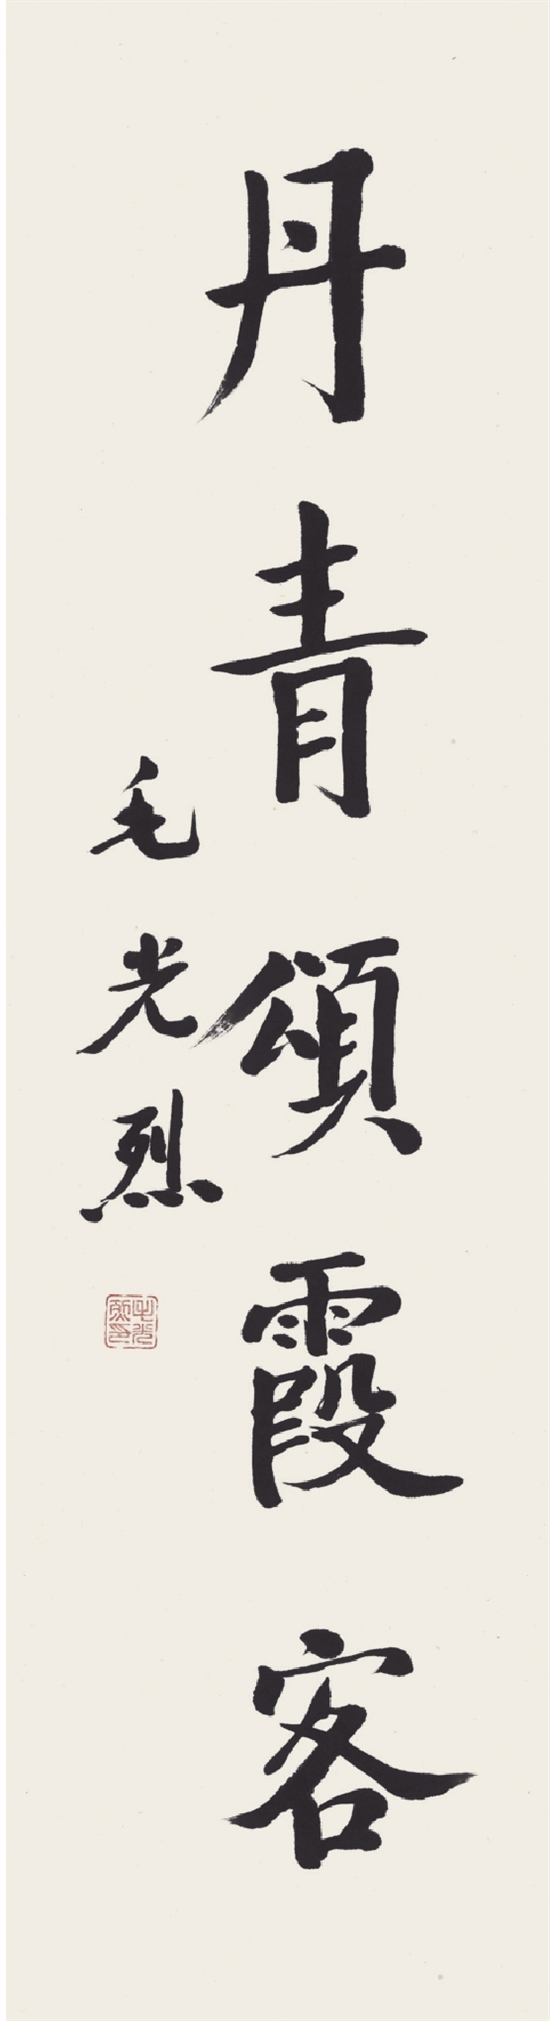 丹青頌霞客
毛光烈